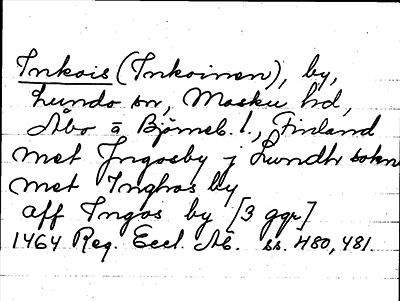 Inkois (Inkoinen), by,
Lundo sn, Masku hd,
Åbo ä Björneb. l., Finland
met Jngosby j Lundh sokn
met Inghos by
aff Ingos by [3 ggr]
1464 Reg. Eccl. Ab. ss. 480, 481.